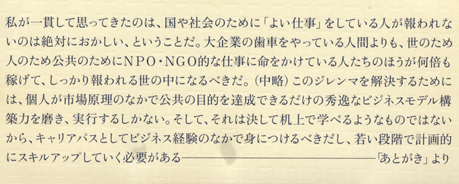 私が一貫して思ってきたのは、国や社会のために「よい仕事」をしている人が報われな
いのは絶対におかしい、ということだ。大企業の歯車をやっている人間よりも、世のため
人のため公共のためにNPO・NGO的な仕事に命をかけている人たちのほうが何倍も
稼げて、しっかり報われる世の中になるべきだ。（中略）このジレンマを解決するために
は、個人が市場原理のなかで公共の目的を達成できるだけの秀逸なビジネスモデル構
築力を磨き、実行するしかない。そして、それは決して机上で学べるようなものではない
から、キャリアパスとしてビジネス経験のなかで身につけるべきだし、若い段階で計画的
にスキルアップしていく必要がある――――――――――「あとがき」より